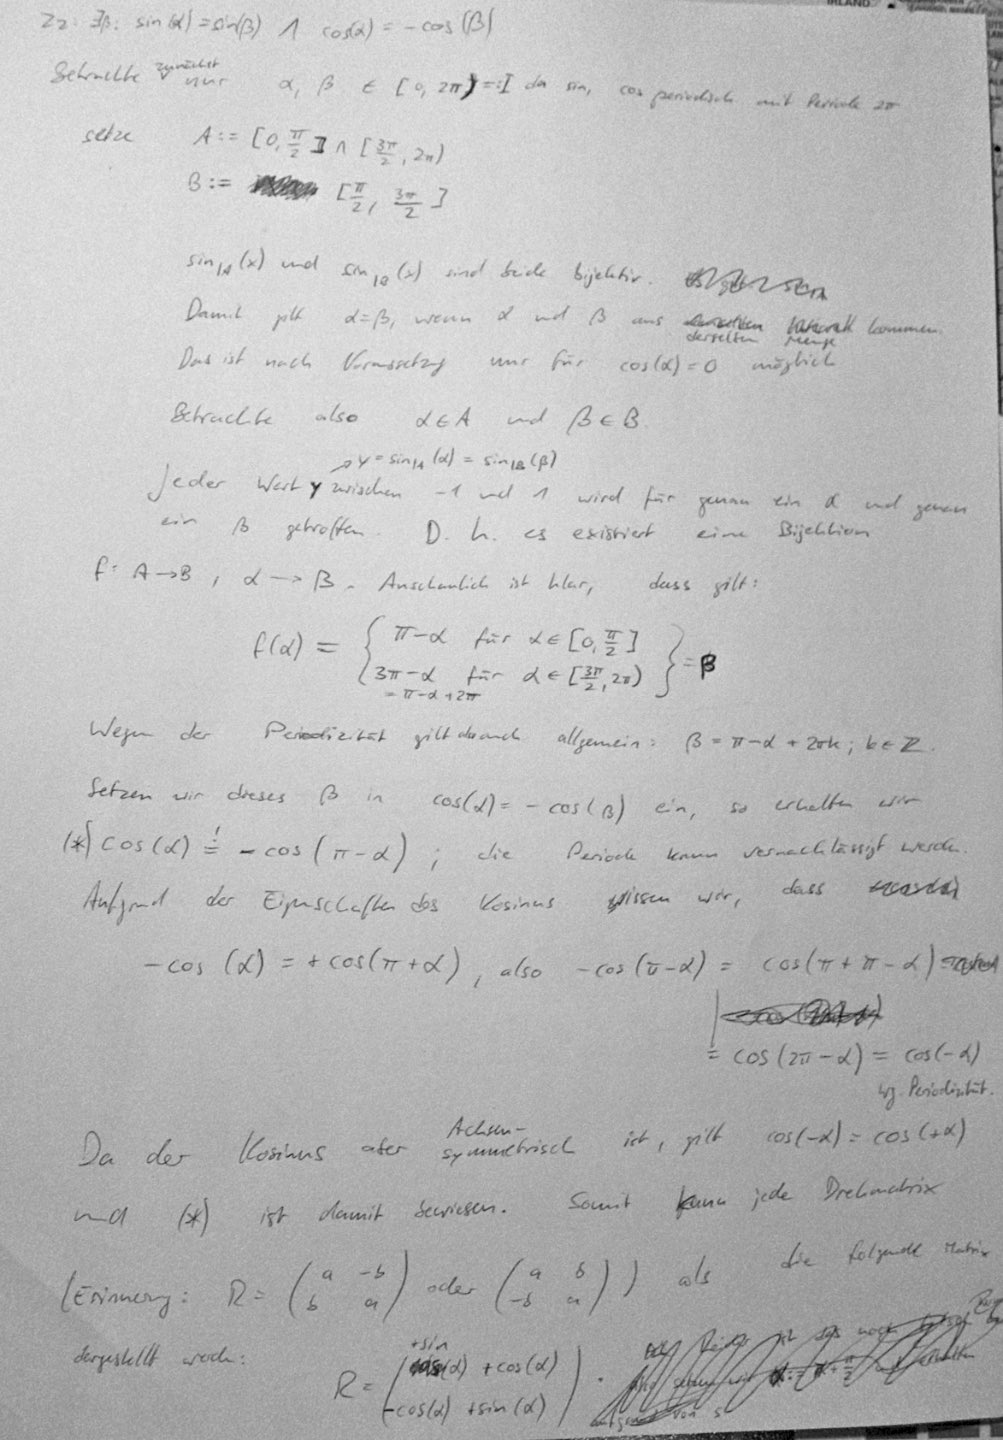 IRLAND
Zz: ∃β: sin(α) = sin(β) ∧ cos(α) = -cos(β)
Betrachte zunächst nur α, β ∈ [0, 2π) =: I da sin, cos periodisch mit Periode 2π
setze A := [0, π/2] ∧ [3π/2, 2π)
B := [π/2, 3π/2]
sin|A(x) und sin|B(x) sind beide bijektiv.
Damit gilt α=β, wenn α und β aus derselben Menge kommen.
Das ist nach Voraussetzg nur für cos(α) = 0 möglich
Betrachte also α ∈ A und β ∈ B.
→ y = sin|A(α) = sin|B(β)
Jeder Wert y zwischen -1 und 1 wird für genau ein α und genau
ein β getroffen. D. h. es existiert eine Bijektion
f: A → B, α → β. Anschaulich ist klar, dass gilt:
f(α) = { π-α für α ∈ [0, π/2]
3π-α für α ∈ [3π/2, 2π) } = β
= π-α+2π
Wegen der Periodizität gilt danach allgemein: β = π-α + 2πk; k ∈ Z.
Setzen wir dieses β in cos(α) = -cos(β) ein, so erhalten wir
(*) cos(α) =! -cos(π-α); die Periode kann vernachlässigt werden.
Aufgrund der Eigenschaften des Kosinus wissen wir, dass
-cos(α) = +cos(π+α), also -cos(π-α) = cos(π+π-α)
= cos(2π-α) = cos(-α)
wg. Periodizität.
Da der Kosinus aber Achsen-symmetrisch ist, gilt cos(-α) = cos(+α)
und (*) ist damit bewiesen. Somit kann jede Drehmatrix
(Erinnerung: R = (a -b; b a) oder (a b; -b a)) als die folgende Matrix
dargestellt werden:
R = (+sin(α) +cos(α); -cos(α) +sin(α)).